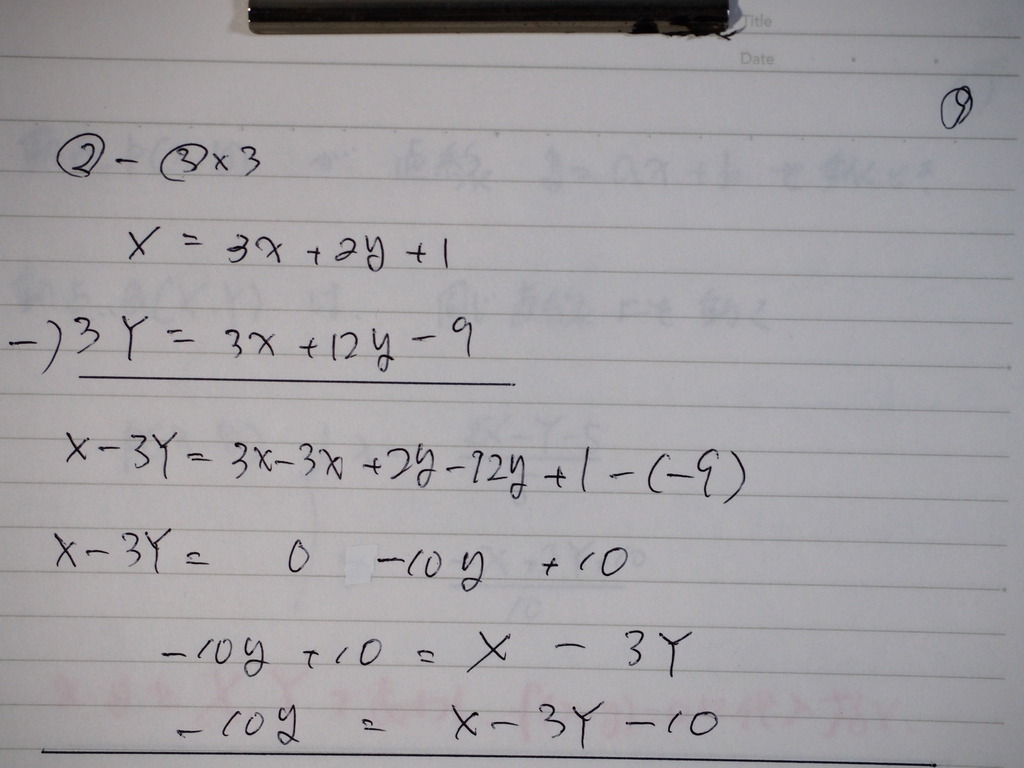 Title
Date
⑨
② - ③×3
X = 3x + 2y + 1
-) 3Y = 3x + 12y - 9
X - 3Y = 3x - 3x + 2y - 12y + 1 - (-9)
X - 3Y = 0 - 10y + 10
-10y + 10 = X - 3Y
-10y = X - 3Y - 10